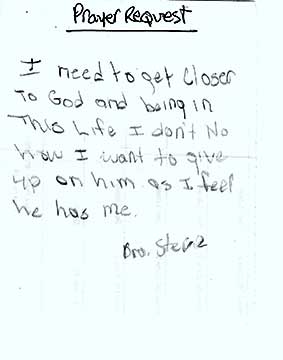 Prayer Request
I need to get closer
To God and being in
This Life I don't No
how I want to give
up on him as I feel
he has me.
Bro.